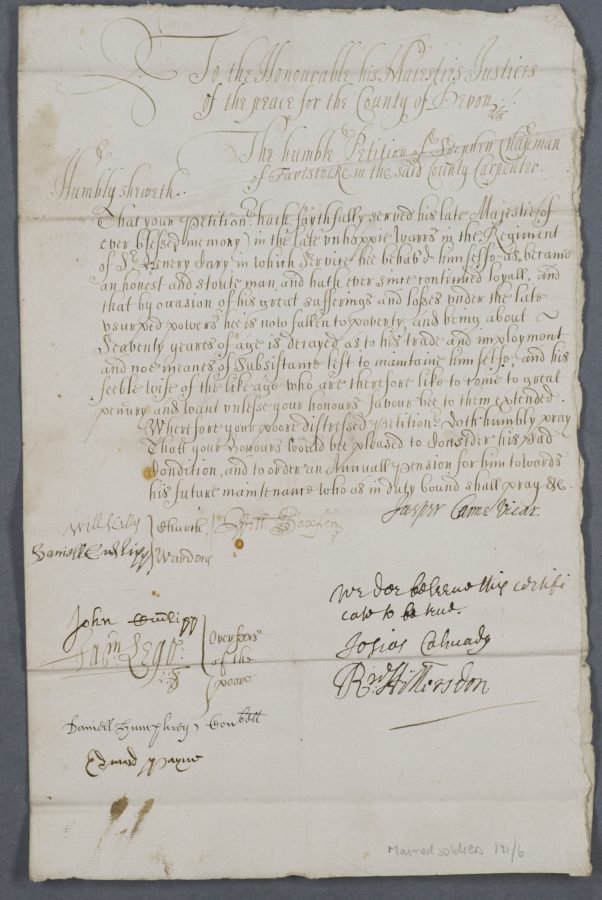 To the Honourable his Majesties Justices
of the peace for the County of Devon
The humble Petition of Stephen Chapman
of Tavistocke in the said County Carpenter
Humbly sheweth
That your Petitionr hath faythfully served his late Majestie (of
ever blessed memory) in the late unhappie warrs in the Regiment
of Sr Henery Cary, in which service hee behav'd himselfe as became
an honest and stoute man, and hath ever since continued loyall, and
that by occasion of his great sufferings and losses under the late
usurped powers hee is now fallen to poverty, and being about
Seaventy yeares of age is decayed as to his trade and imployment
and noe meanes of Subsistance left to maintaine himselfe, and his
feeble wife of the like age who are therefore like to come to great
penury and want unlesse your honours favour bee to them extended
Wherefore your poore distressed Petitionr doth humbly pray
That your Honours would bee pleased to Consider his sad
Condition, and to order an Annuall Pension for him towards
his future maintenance who as in duty bound shall pray &c.
Jasper Came Vicar
Will
Church
Daniell Cudlipp
Wardens
wee doe beleeve this certifi
cate to be true
John Cudlipp
Josias Calmady
Overseers
of the
poore
Ric Hillersdon
Daniell Humphrey
Edward Payne
Maimed soldiers 121/6